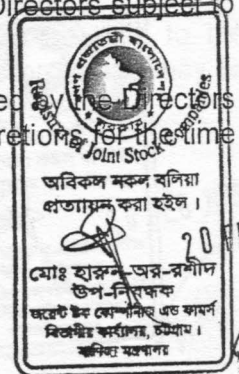 Directors subject to
ed by the Directors
retions for the time
Joint Stock Companies
অবিকল নকল বলিয়া
প্রত্যায়ন করা হইল।
20
মোঃ হারুন-অর-রশীদ
উপ-নিবন্ধক
জয়েন্ট ষ্টক কোম্পানীজ এন্ড ফার্মস
বিভাগীয় কার্যালয়, চট্টগ্রাম।
বাণিজ্য মন্ত্রণালয়